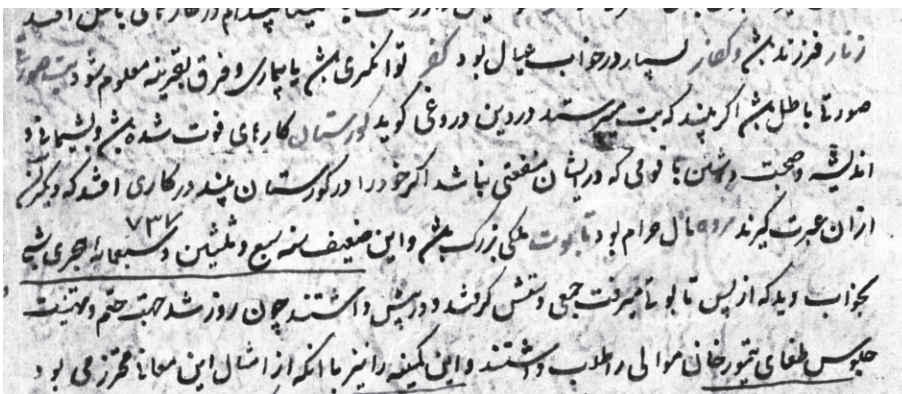 زنار فرزند بش و کفار بسیار در خواب عیال بود کفر توانگری بش یا بیماری و فرق بقرینه معلوم شود بت صورتها
صورتا باطل بش اگر بیند که بت میپرستد در دین دروغی گوید گورستان کارهای فوت شده بش و پشیمانی و
اندیشه و صحبت داشتن با قومی که در ایشان منفعتی نباشد اگر خود را در گورستان بیند در کاری افتد که دیگران
ازان عبرت گیرند مرده مال حرام بود تابوت ملکی بزرگ بش و این ضعیف سنه سبع و ثلثین و سبعمائه ۷۳۷ هجری شبی
بخواب دید که از پس تابوتی میرفت جمعی دستش گرفتند و در پیش داشتند چون روز شد جهت ختم و تهنیت
جلوس طغای تیمور خان موالی را طلب داشتند و این کمینه را نیز با انکه از امثال این معانی محترز می بود